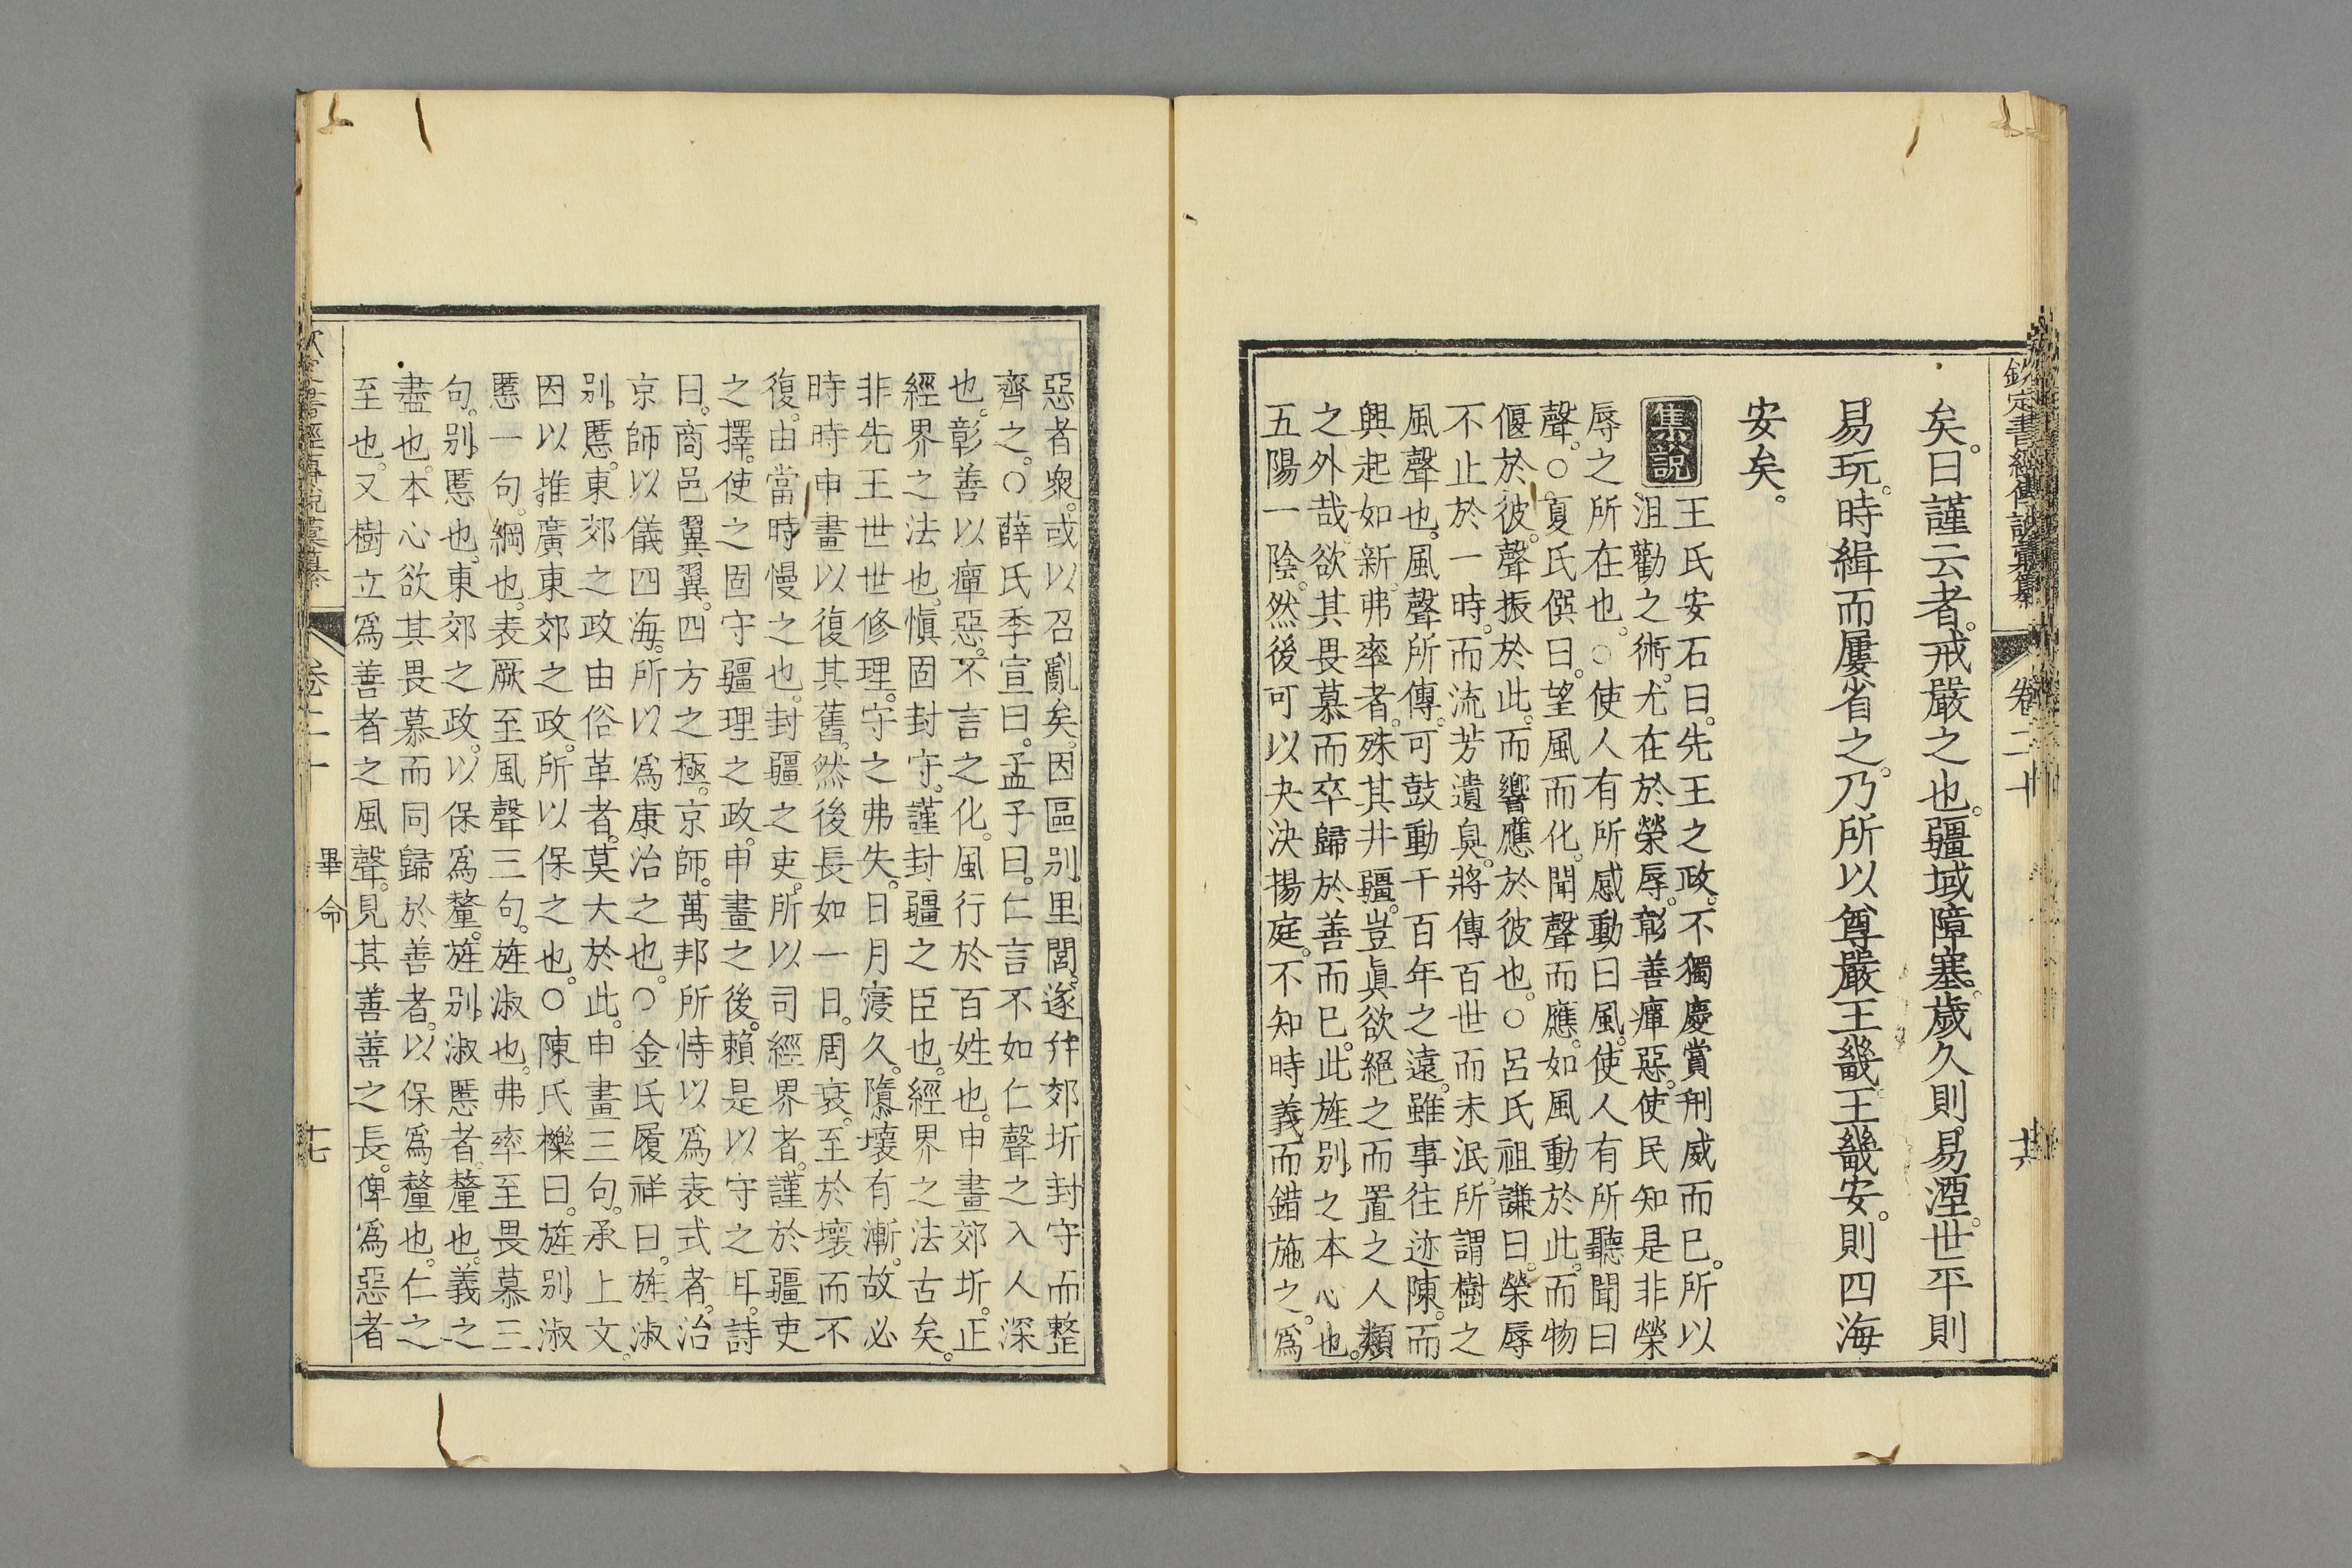 欽定書經傳說彙纂 卷二十
矣。曰謹云者。戒嚴之也。疆域障塞。歲久則易湮。世平則
易玩。時緝而屢省之。乃所以尊嚴王畿。王畿安。則四海
安矣。
集說
王氏安石曰。先王之政。不獨慶賞刑威而已。所以
沮勸之術。尤在於榮辱。彰善癉惡。使民知是非榮
辱之所在也。○使人有所感動曰風。使人有所聽聞曰
聲。○夏氏僎曰。望風而化。聞聲而應。如風動於此。而物
偃於彼。聲振於此。而響應於彼也。○呂氏祖謙曰。榮辱
不止於一時。而流芳遺臭。將傳百世而未泯。所謂樹之
風聲也。風聲所傳。可鼓動千百年之遠。雖事往迹陳。而
興起如新。弗率者。殊其井疆。豈眞欲絕之而置之人類
之外哉。欲其畏慕而卒歸於善而已。此旌別之本心也。
五陽一陰。然後可以夬決揚庭。不知時義而錯施之。爲
惡者衆。或以召亂矣。因區別里閭。遂幷郊圻封守而整
齊之。○薛氏季宣曰。孟子曰。仁言不如仁聲之入人深
也。彰善以癉惡。不言之化。風行於百姓也。申畫郊圻。正
經界之法也。愼固封守。謹封疆之臣也。經界之法古矣。
非先王世世修理。守之弗失。日月寖久。隳壞有漸。故必
時時申畫以復其舊。然後長如一日。周衰。至於壞而不
復。由當時慢之也。封疆之吏。所以司經界者。謹於疆吏
之擇。使之固守疆理之政。申畫之後。賴是以守之耳。詩
曰。商邑翼翼。四方之極。京師。萬邦所恃以爲表式者。治
京師以儀四海。所以爲康治之也。○金氏履祥曰。旌淑
別慝。東郊之政由俗革者。莫大於此。申畫三句。承上文。
因以推廣東郊之政。所以保之也。○陳氏櫟曰。旌別淑
慝一句。綱也。表厥至風聲三句。旌淑也。弗率至畏慕三
句。別慝也。東郊之政。以保爲釐。旌別淑慝者。釐也。義之
盡也。本心欲其畏慕而同歸於善者。以保爲釐也。仁之
至也。又樹立爲善者之風聲。見其善善之長。俾爲惡者
卷二十 畢命